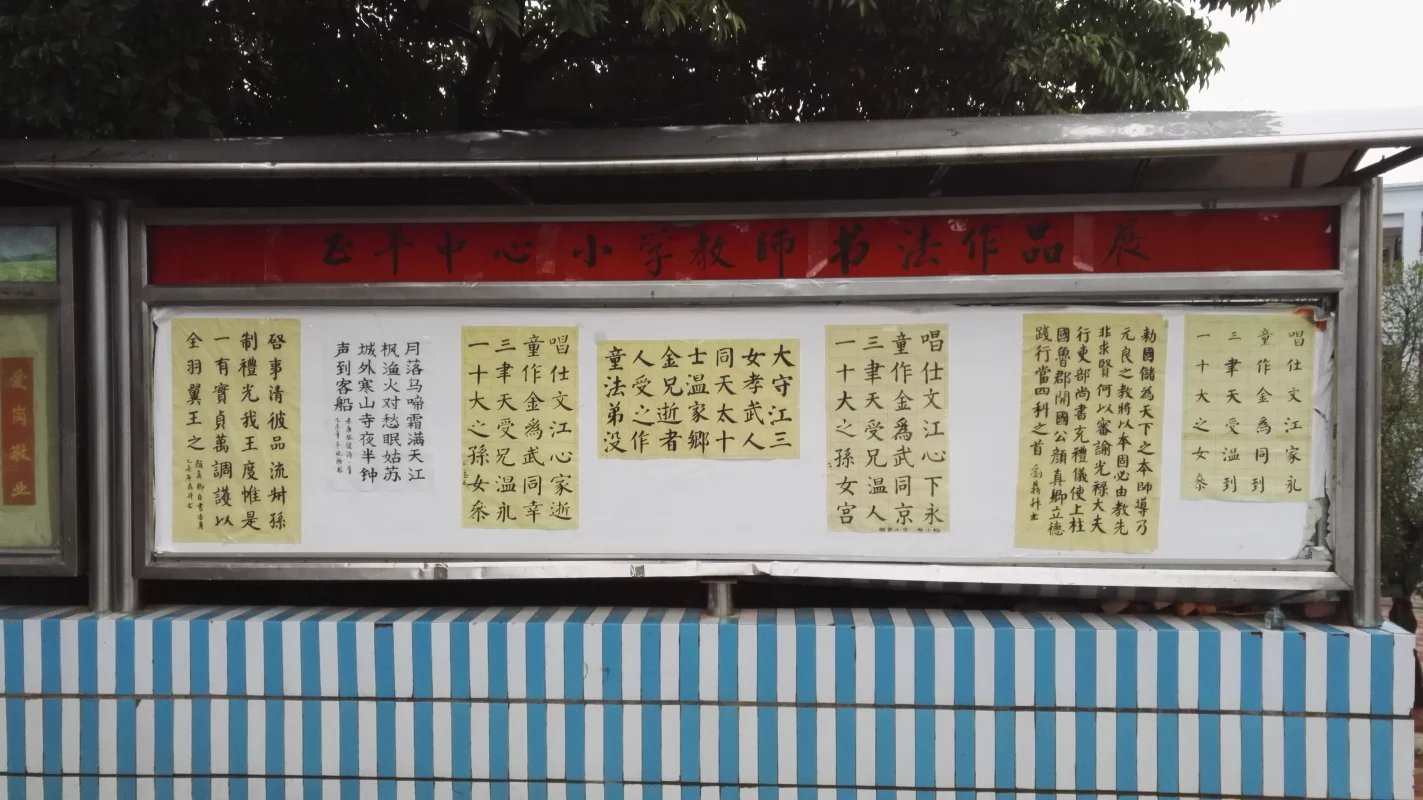 中心小学教师书法作品展
唱仕文江家永
童作金為同到
三聿天受温到
一十大之女叅
勅國儲為天下之本師導乃
元良之教將以本固必由教先
非求賢何以審諭光祿大夫
行吏部尚書充禮儀使上柱
國魯郡開國公顏真卿立德
踐行當四科之首
唱仕文江心下永
童作金為武同京
三聿天受兄温人
一十大之孫女宫
大守江三
女孝武人
同天太十
士温家鄉
金兄逝者
人受之作
童法弟没
唱仕文江心家逝
童作金為武同幸
三聿天受兄温永
一十大之孫女叅
月落乌啼霜满天江
枫渔火对愁眠姑苏
城外寒山寺夜半钟
声到客船
啓事清彼品流叅孫
制禮光我王度惟是
一有實貞萬調護以
全羽翼王之
爱岗敬业